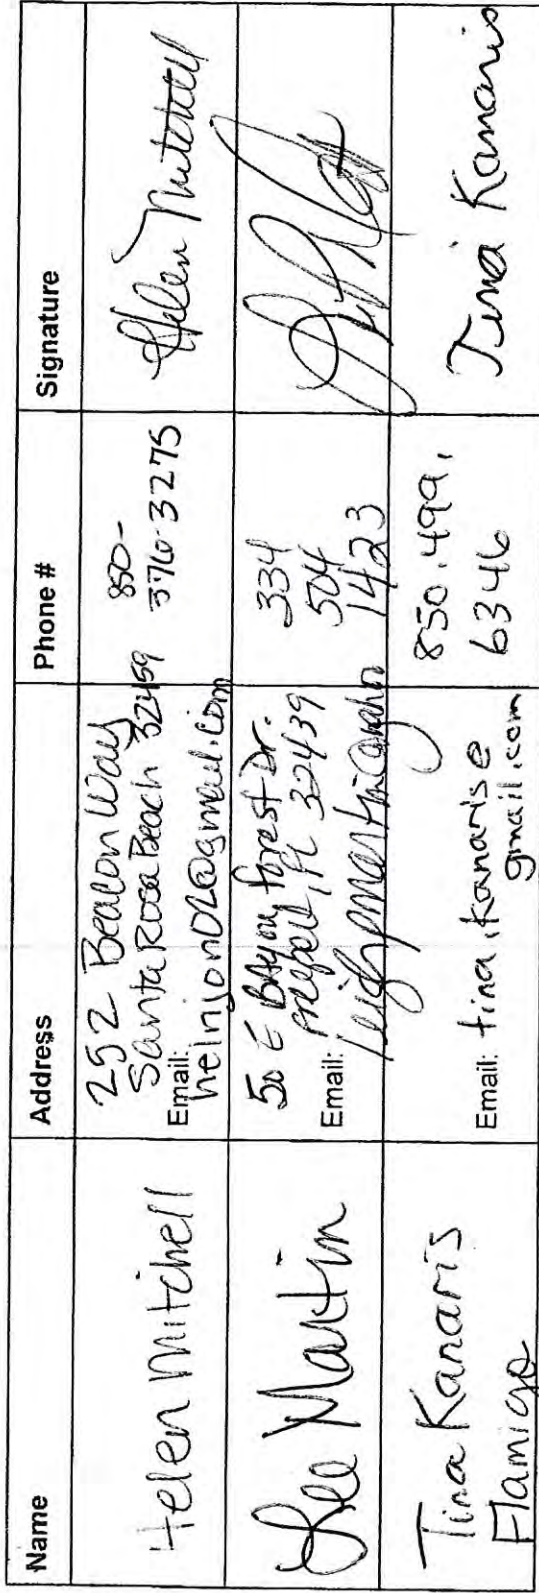 Name
Address
Phone #
Signature
Helen Mitchell
252 Beacon Way
Santa Rosa Beach 32459
Email:
helnjon02@gmail.com
850-
376-3275
Helen Mitchell
Lee Martin
50 E Bayou Forest Dr.
Freeport, FL 32439
Email:
334
504
1423
Tina Kanaris
Flamigo
Email: tina.kanaris@
gmail.com
850.499.
6346
Tina Kanaris